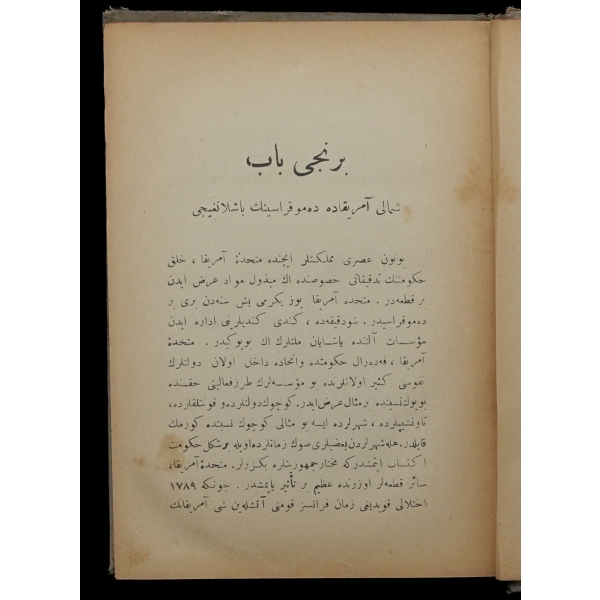 برنجی باب
شمالی آمریقاده دەموقراسینك باشلانغیجی
بوتون عصری مملكتلر ایچنده متحدهٔ آمریقا ، خلق
حكومتنك تدقیقاتی خصوصنده اك مبذول مواد عرض ایدن
بر قطعه‌در . متحده آمریقا یوز یكرمی بش سنه‌دن بری بر
دەموقراسیدر . شودقیقه‌ده ، كندی كندیلرینی اداره ایدن
مؤسسات آلتنده یاشایان ملتلرك اك بویوكیدر . متحدهٔ
آمریقا ، فه‌ده‌رال حكومتده واتحاده داخل اولان دولتلرك
نفوسی كثیر اولانلرنده بو مؤسسه‌لرك طرز فعالیتی حقنده
بویوك نسبتده بر مثال عرض ایدر. كوچوك دولتلرده و قونتلقلرده،
تاونشیپلرده ، شهرلرده ایسه بو مثالی كوچوك نسبتده كورمك
قابلدر. هله شهرلردن بعضیلری صوك زمانلرده اویله بر شكل حكومت
اكتساب ایتمشدركه مختار جمهورسیتلره بكزرلر. متحدهٔ آمریقا،
سائر قطعه‌لر اوزرنده عظیم بر تأثیر یاپمشدر . چونكه ۱۷۸۹
اختلالی قوپدیغی زمان فرانسز قومنی آتشله‌ین شی آمریقانك